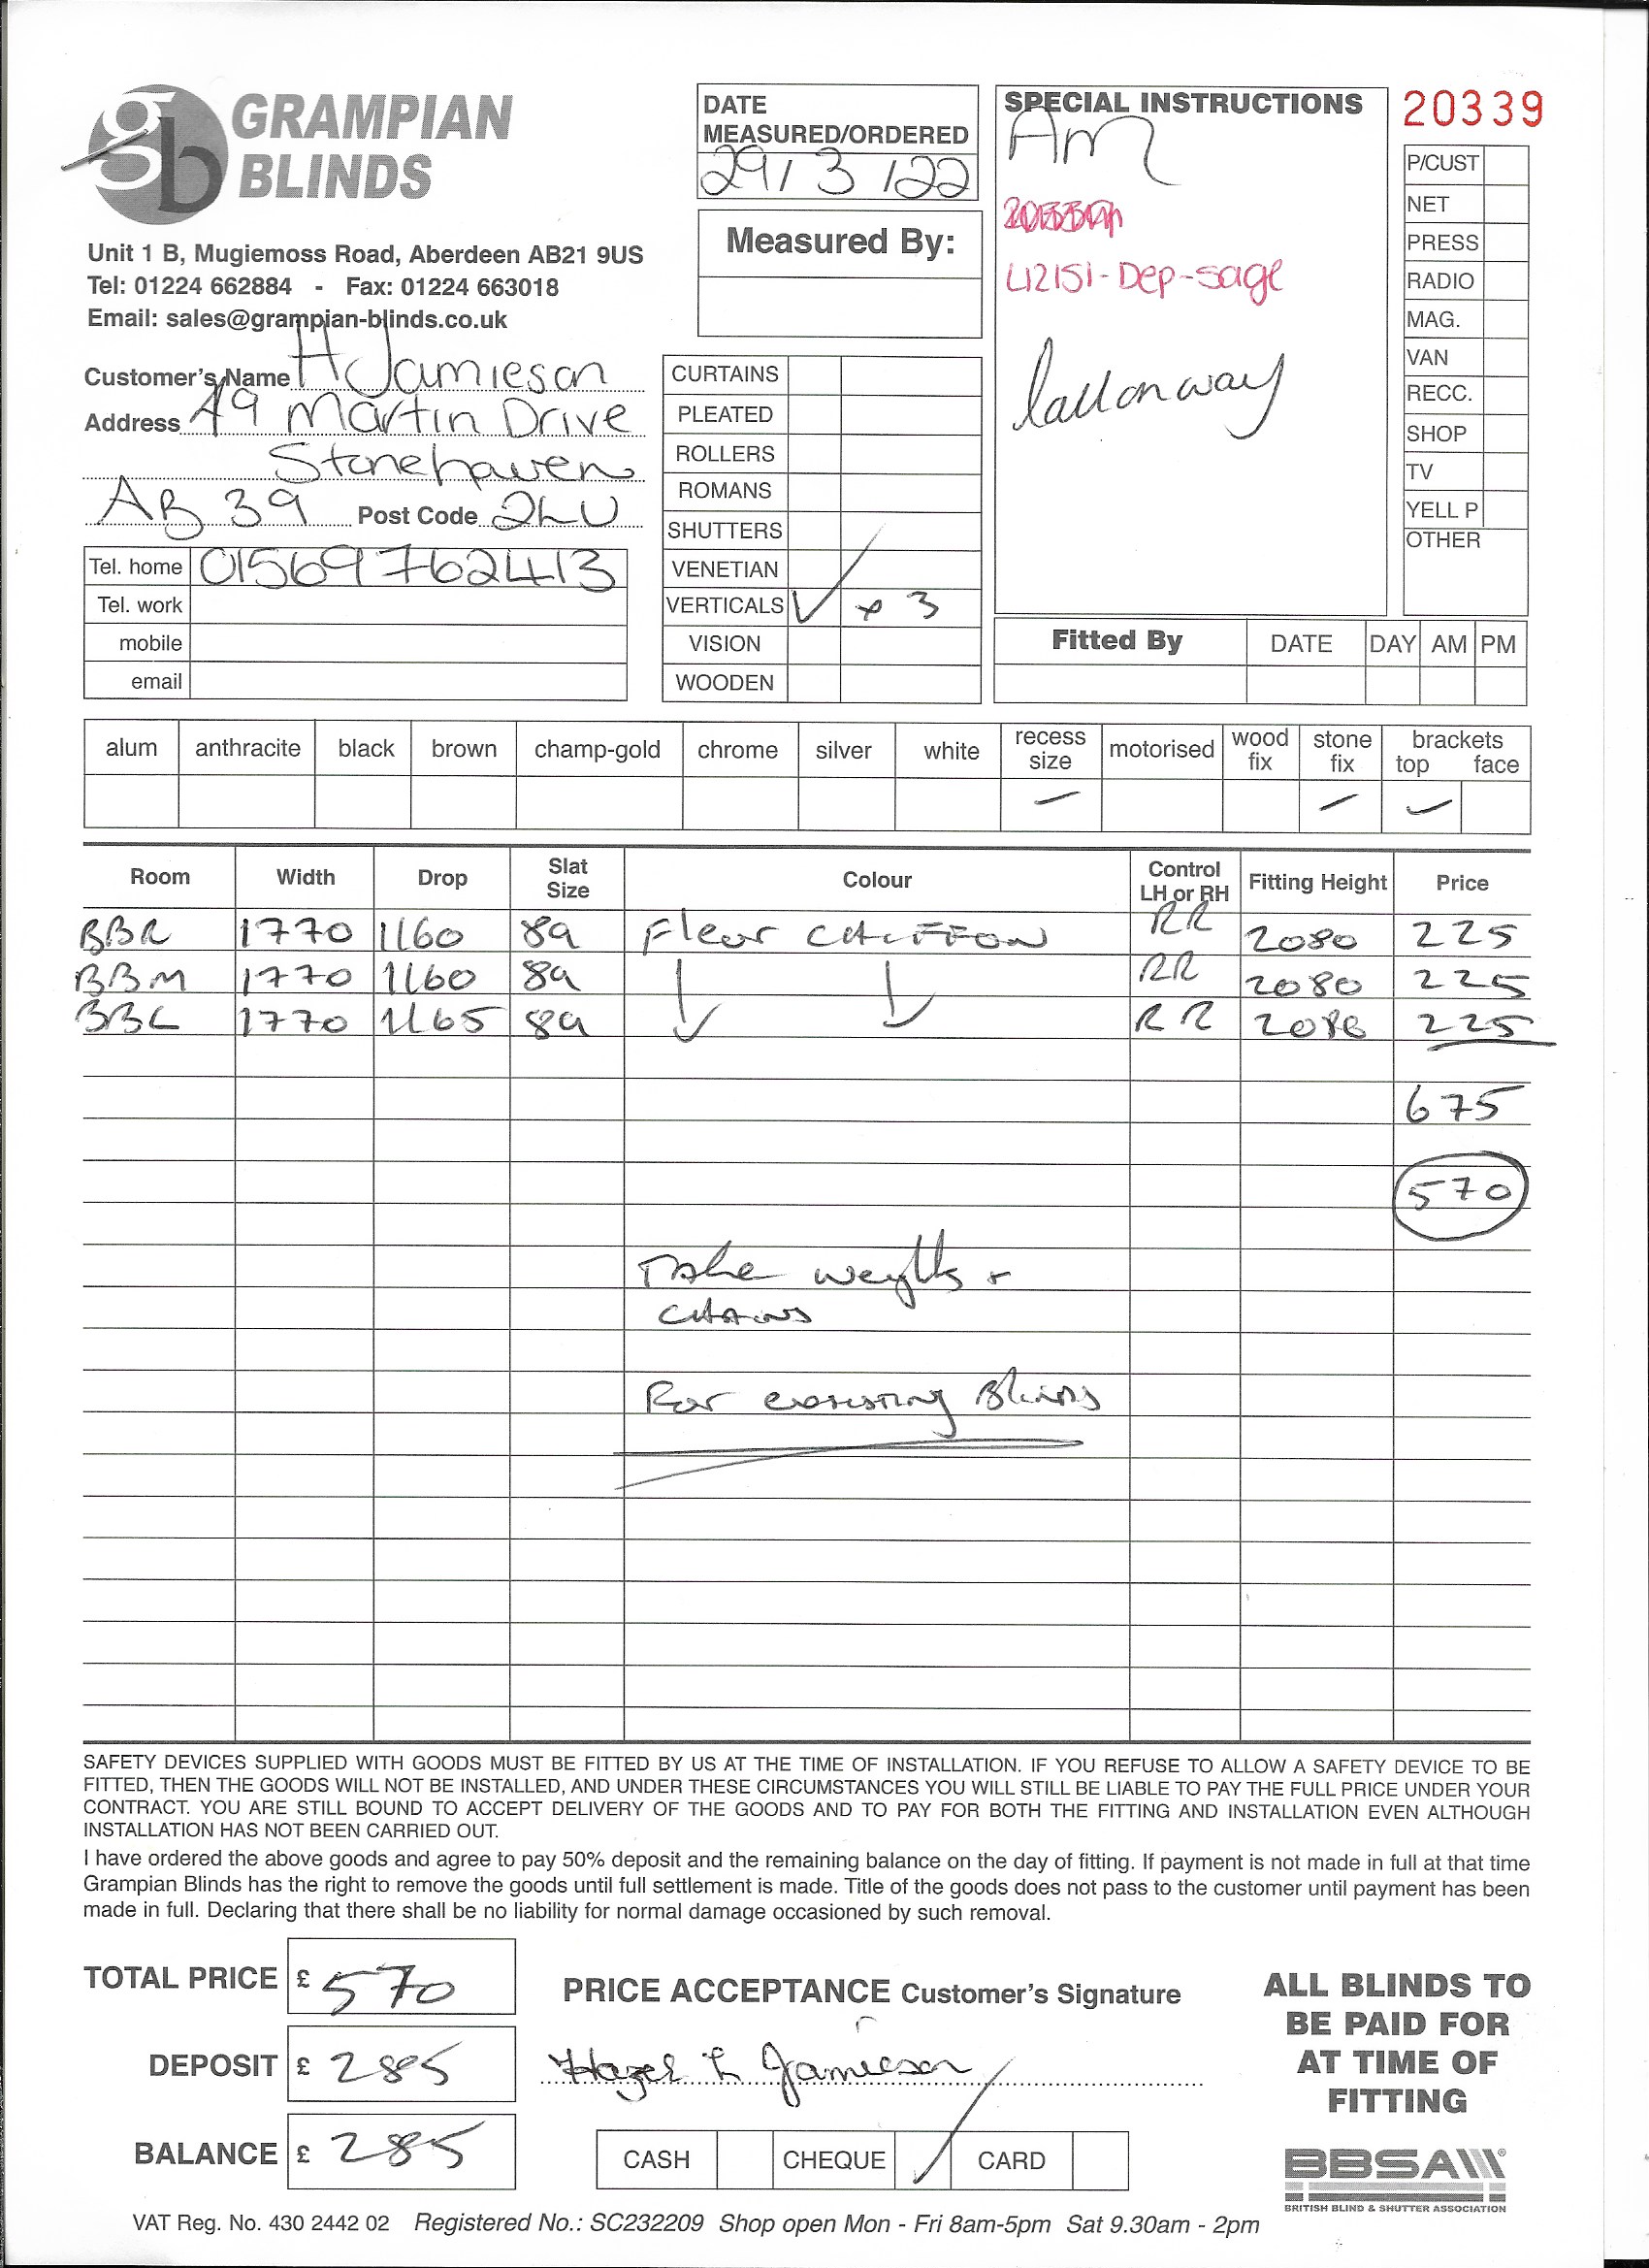 GRAMPIAN
BLINDS
Unit 1 B, Mugiemoss Road, Aberdeen AB21 9US
Tel: 01224 662884 - Fax: 01224 663018
Email: sales@grampian-blinds.co.uk
DATE
MEASURED/ORDERED
29/3/22
Measured By:
SPECIAL INSTRUCTIONS
AM
L12151-Dep-sage
Call on way
20339
P/CUST
NET
PRESS
RADIO
MAG.
VAN
RECC.
SHOP
TV
YELL P
OTHER
Customer's Name H Jamieson
Address 49 Martin Drive
Stonehaven
AB 39 Post Code 2LU
Tel. home 01569762413
Tel. work
mobile
email
CURTAINS
PLEATED
ROLLERS
ROMANS
SHUTTERS
VENETIAN
VERTICALS ✓ x 3
VISION
WOODEN
Fitted By DATE DAY AM PM
alum anthracite black brown champ-gold chrome silver white recess size motorised wood fix stone fix brackets top face
Room Width Drop Slat Size Colour Control LH or RH Fitting Height Price
BBR 1770 1160 89 Fleur CHIFFON RR 2080 225
BBM 1770 1160 89 RR 2080 225
BBL 1770 1165 89 RR 2080 225
675
570
Take weights +
CHAINS
For existing Blinds
SAFETY DEVICES SUPPLIED WITH GOODS MUST BE FITTED BY US AT THE TIME OF INSTALLATION. IF YOU REFUSE TO ALLOW A SAFETY DEVICE TO BE
FITTED, THEN THE GOODS WILL NOT BE INSTALLED, AND UNDER THESE CIRCUMSTANCES YOU WILL STILL BE LIABLE TO PAY THE FULL PRICE UNDER YOUR
CONTRACT. YOU ARE STILL BOUND TO ACCEPT DELIVERY OF THE GOODS AND TO PAY FOR BOTH THE FITTING AND INSTALLATION EVEN ALTHOUGH
INSTALLATION HAS NOT BEEN CARRIED OUT.
I have ordered the above goods and agree to pay 50% deposit and the remaining balance on the day of fitting. If payment is not made in full at that time
Grampian Blinds has the right to remove the goods until full settlement is made. Title of the goods does not pass to the customer until payment has been
made in full. Declaring that there shall be no liability for normal damage occasioned by such removal.
TOTAL PRICE £ 570
DEPOSIT £ 285
BALANCE £ 285
PRICE ACCEPTANCE Customer's Signature
Hazel L Jamieson
CASH CHEQUE ✓ CARD
ALL BLINDS TO
BE PAID FOR
AT TIME OF
FITTING
BBSA
BRITISH BLIND & SHUTTER ASSOCIATION
VAT Reg. No. 430 2442 02 Registered No.: SC232209 Shop open Mon - Fri 8am-5pm Sat 9.30am - 2pm